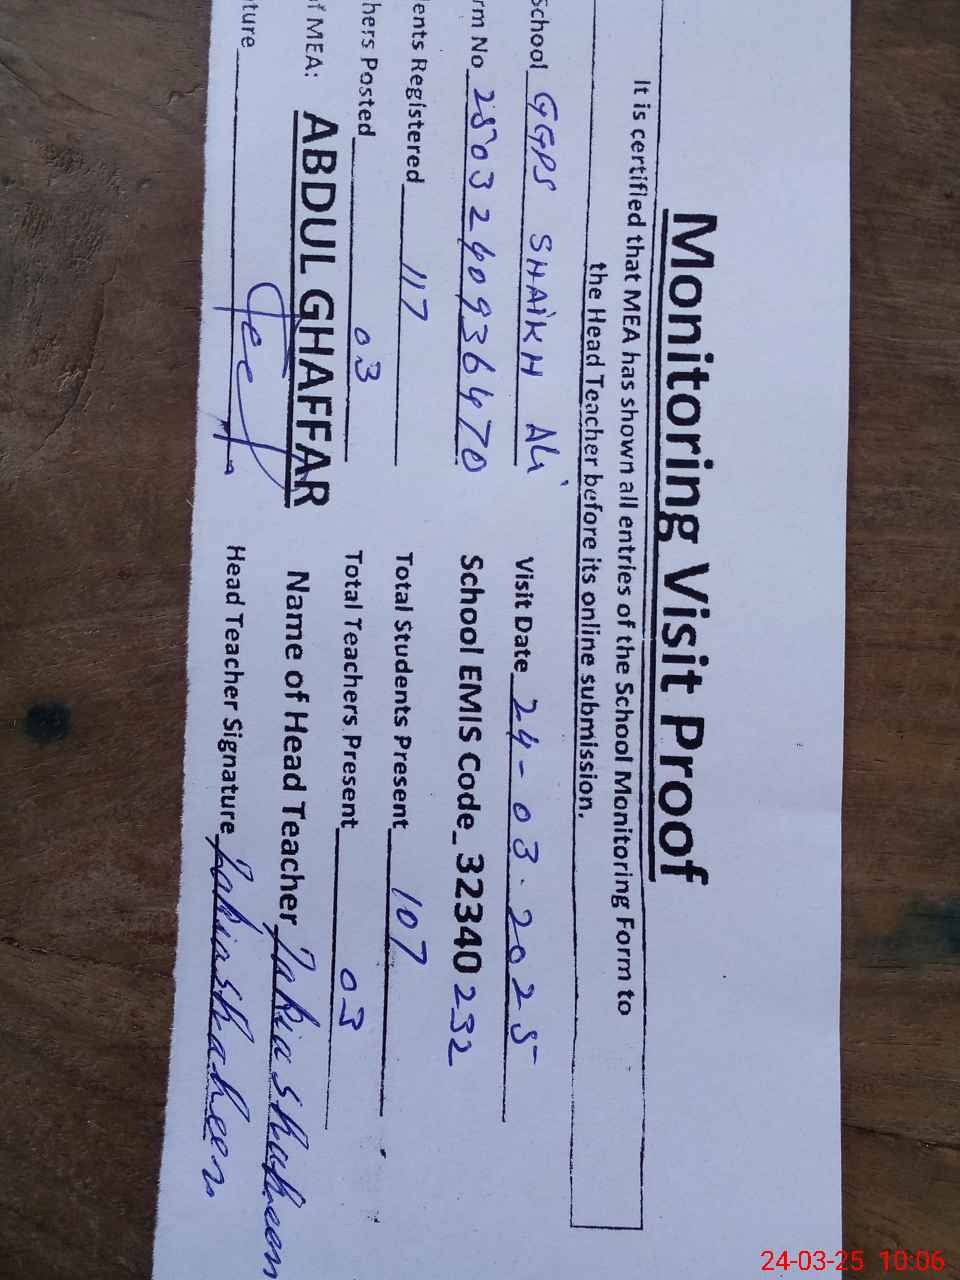 Monitoring Visit Proof
It is certified that MEA has shown all entries of the School Monitoring Form to
the Head Teacher before its online submission.
School GGPS SHAIKH ALI Visit Date 24-03-2025
rm No 2503240936470 School EMIS Code_ 32340232
ents Registered 117 Total Students Present 107
hers Posted 03 Total Teachers Present 03
of MEA: ABDUL GHAFFAR Name of Head Teacher Zakia Shaheen
ture Head Teacher Signature Zakia Shaheen
24-03-25 10:06